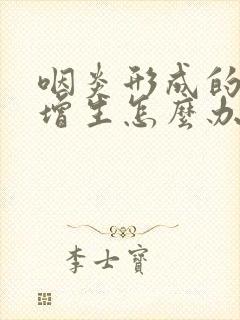 咽炎形成的
增生怎麼办
李士寶